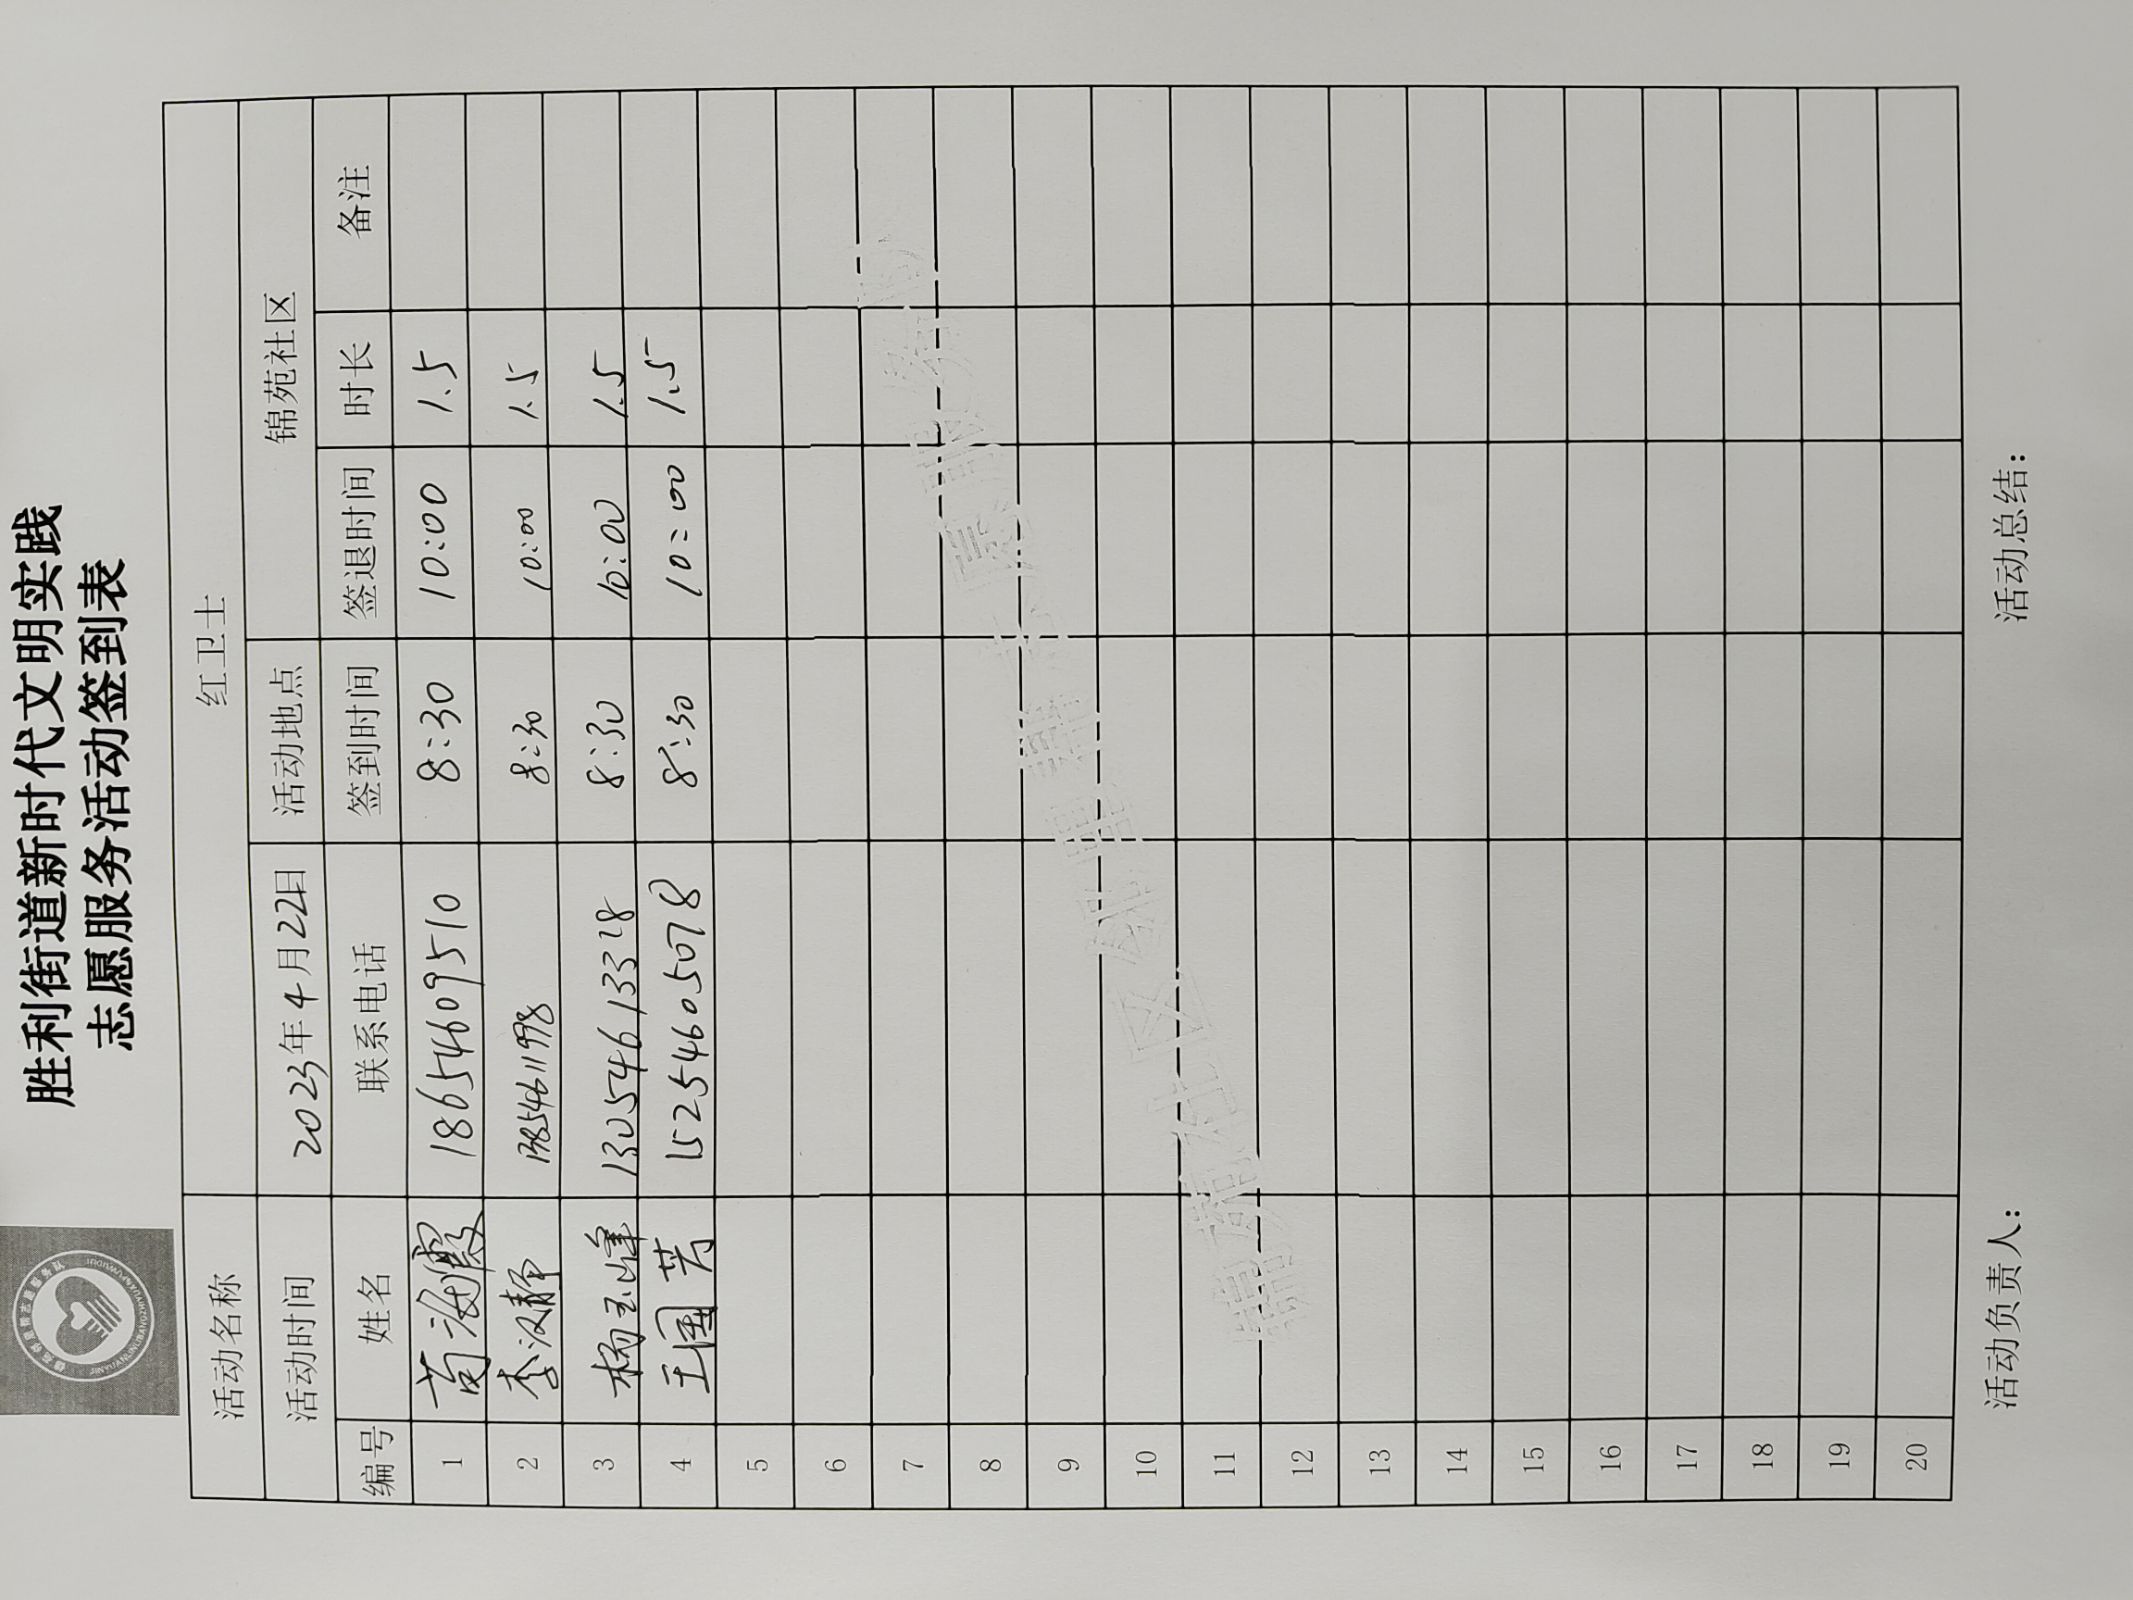 胜利街道新时代文明实践
志愿服务活动签到表
活动名称 红卫士
活动时间 2023年4月22日 活动地点 锦苑社区
编号 姓名 联系电话 签到时间 签退时间 时长 备注
1 苗海霞 18654609510 8:30 10:00 1.5
2 李汉静 13854611998 8:30 10:00 1.5
3 杨玉峰 13054613328 8:30 10:00 1.5
4 王国芳 15254605078 8:30 10:00 1.5
5
6
7
8
9
10
11
12
13
14
15
16
17
18
19
20
活动负责人： 活动总结：